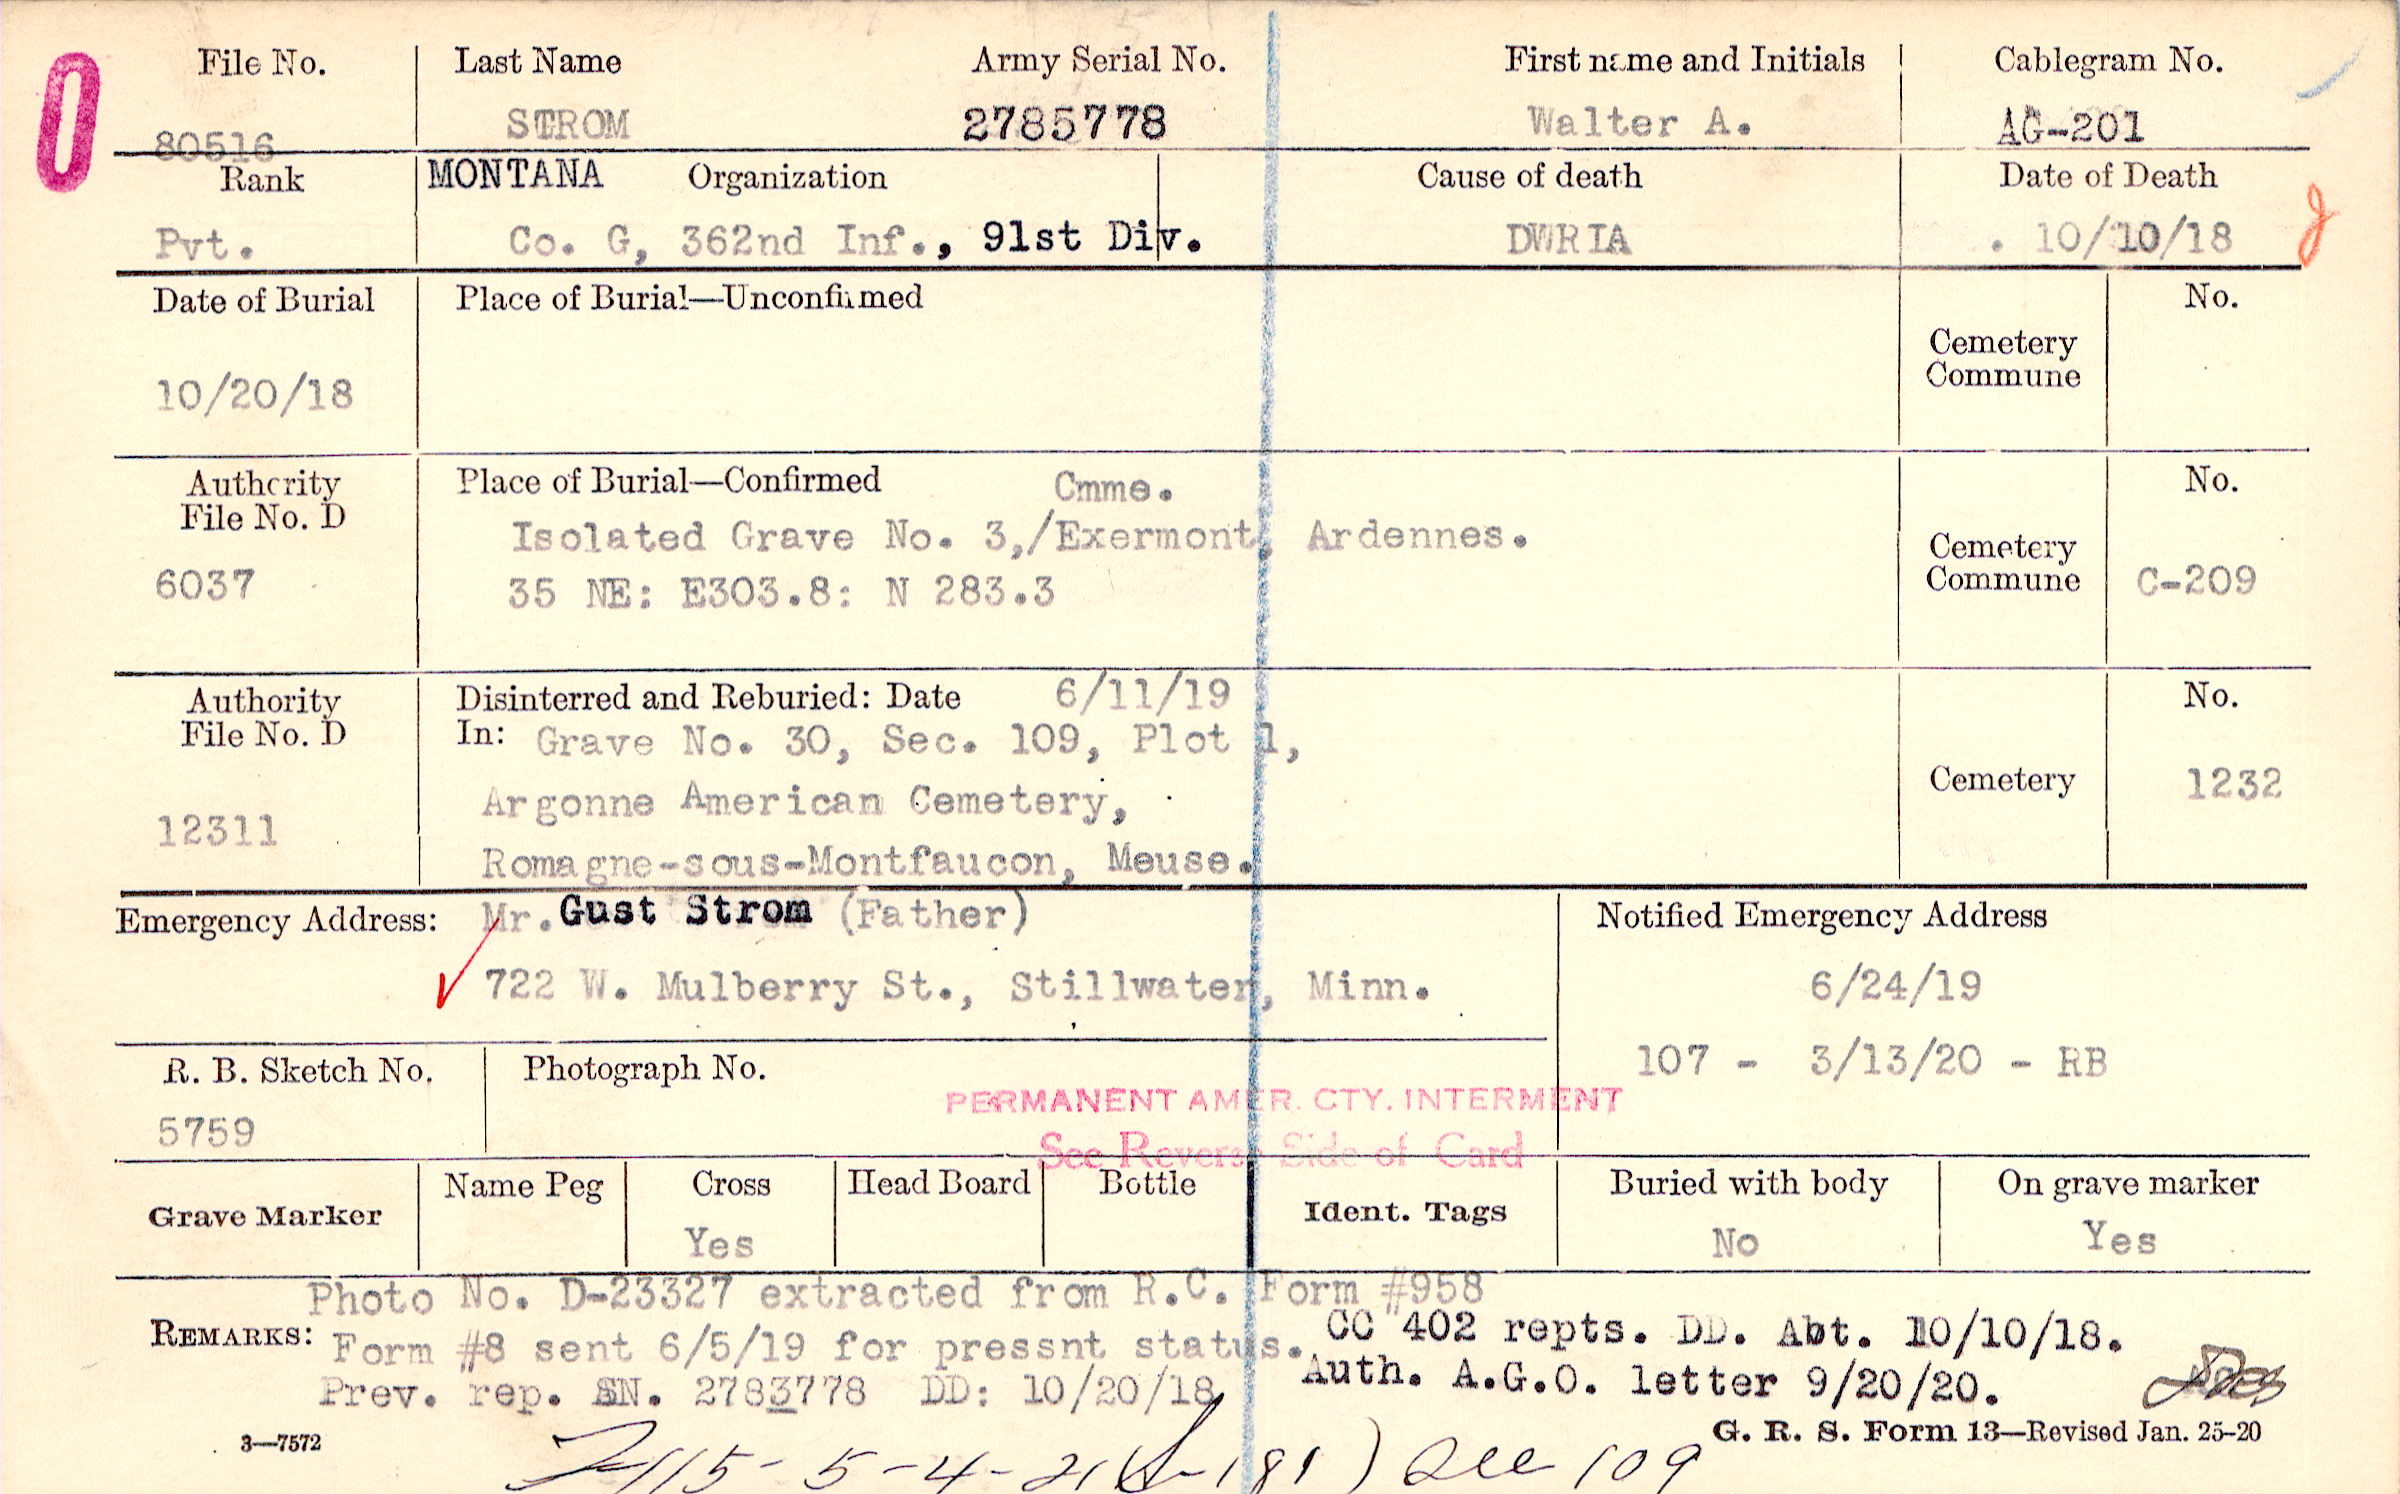 File No. Last Name Army Serial No. First name and Initials Cablegram No.
80516 STROM 2785778 Walter A. AG-201
Rank MONTANA Organization Cause of death Date of Death
Pvt. Co. G, 362nd Inf., 91st Div. DWRIA . 10/10/18
Date of Burial Place of Burial—Unconfirmed No.
Cemetery
Commune
10/20/18
Authority Place of Burial—Confirmed Cmme. No.
File No. D
Isolated Grave No. 3,/Exermont, Ardennes.
Cemetery
6037 35 NE: E303.8: N 283.3 Commune C-209
Authority Disinterred and Reburied: Date 6/11/19 No.
File No. D In: Grave No. 30, Sec. 109, Plot 1,
Argonne American Cemetery, Cemetery 1232
12311
Romagne-sous-Montfaucon, Meuse.
Emergency Address: Mr. Gust Strom (Father) Notified Emergency Address
722 W. Mulberry St., Stillwater, Minn. 6/24/19
R. B. Sketch No. Photograph No. 107 - 3/13/20 - RB
PERMANENT AMER. CTY. INTERMENT
5759
See Reverse Side of Card
Grave Marker Name Peg Cross Head Board Bottle Ident. Tags Buried with body On grave marker
Yes No Yes
Photo No. D-23327 extracted from R.C. Form #958
REMARKS: Form #8 sent 6/5/19 for pressnt status. CC 402 repts. DD. Abt. 10/10/18.
Prev. rep. SN. 2783778 DD: 10/20/18 Auth. A.G.O. letter 9/20/20.
3—7572 G. R. S. Form 13—Revised Jan. 25-20
115-5-4-21 181) See 109